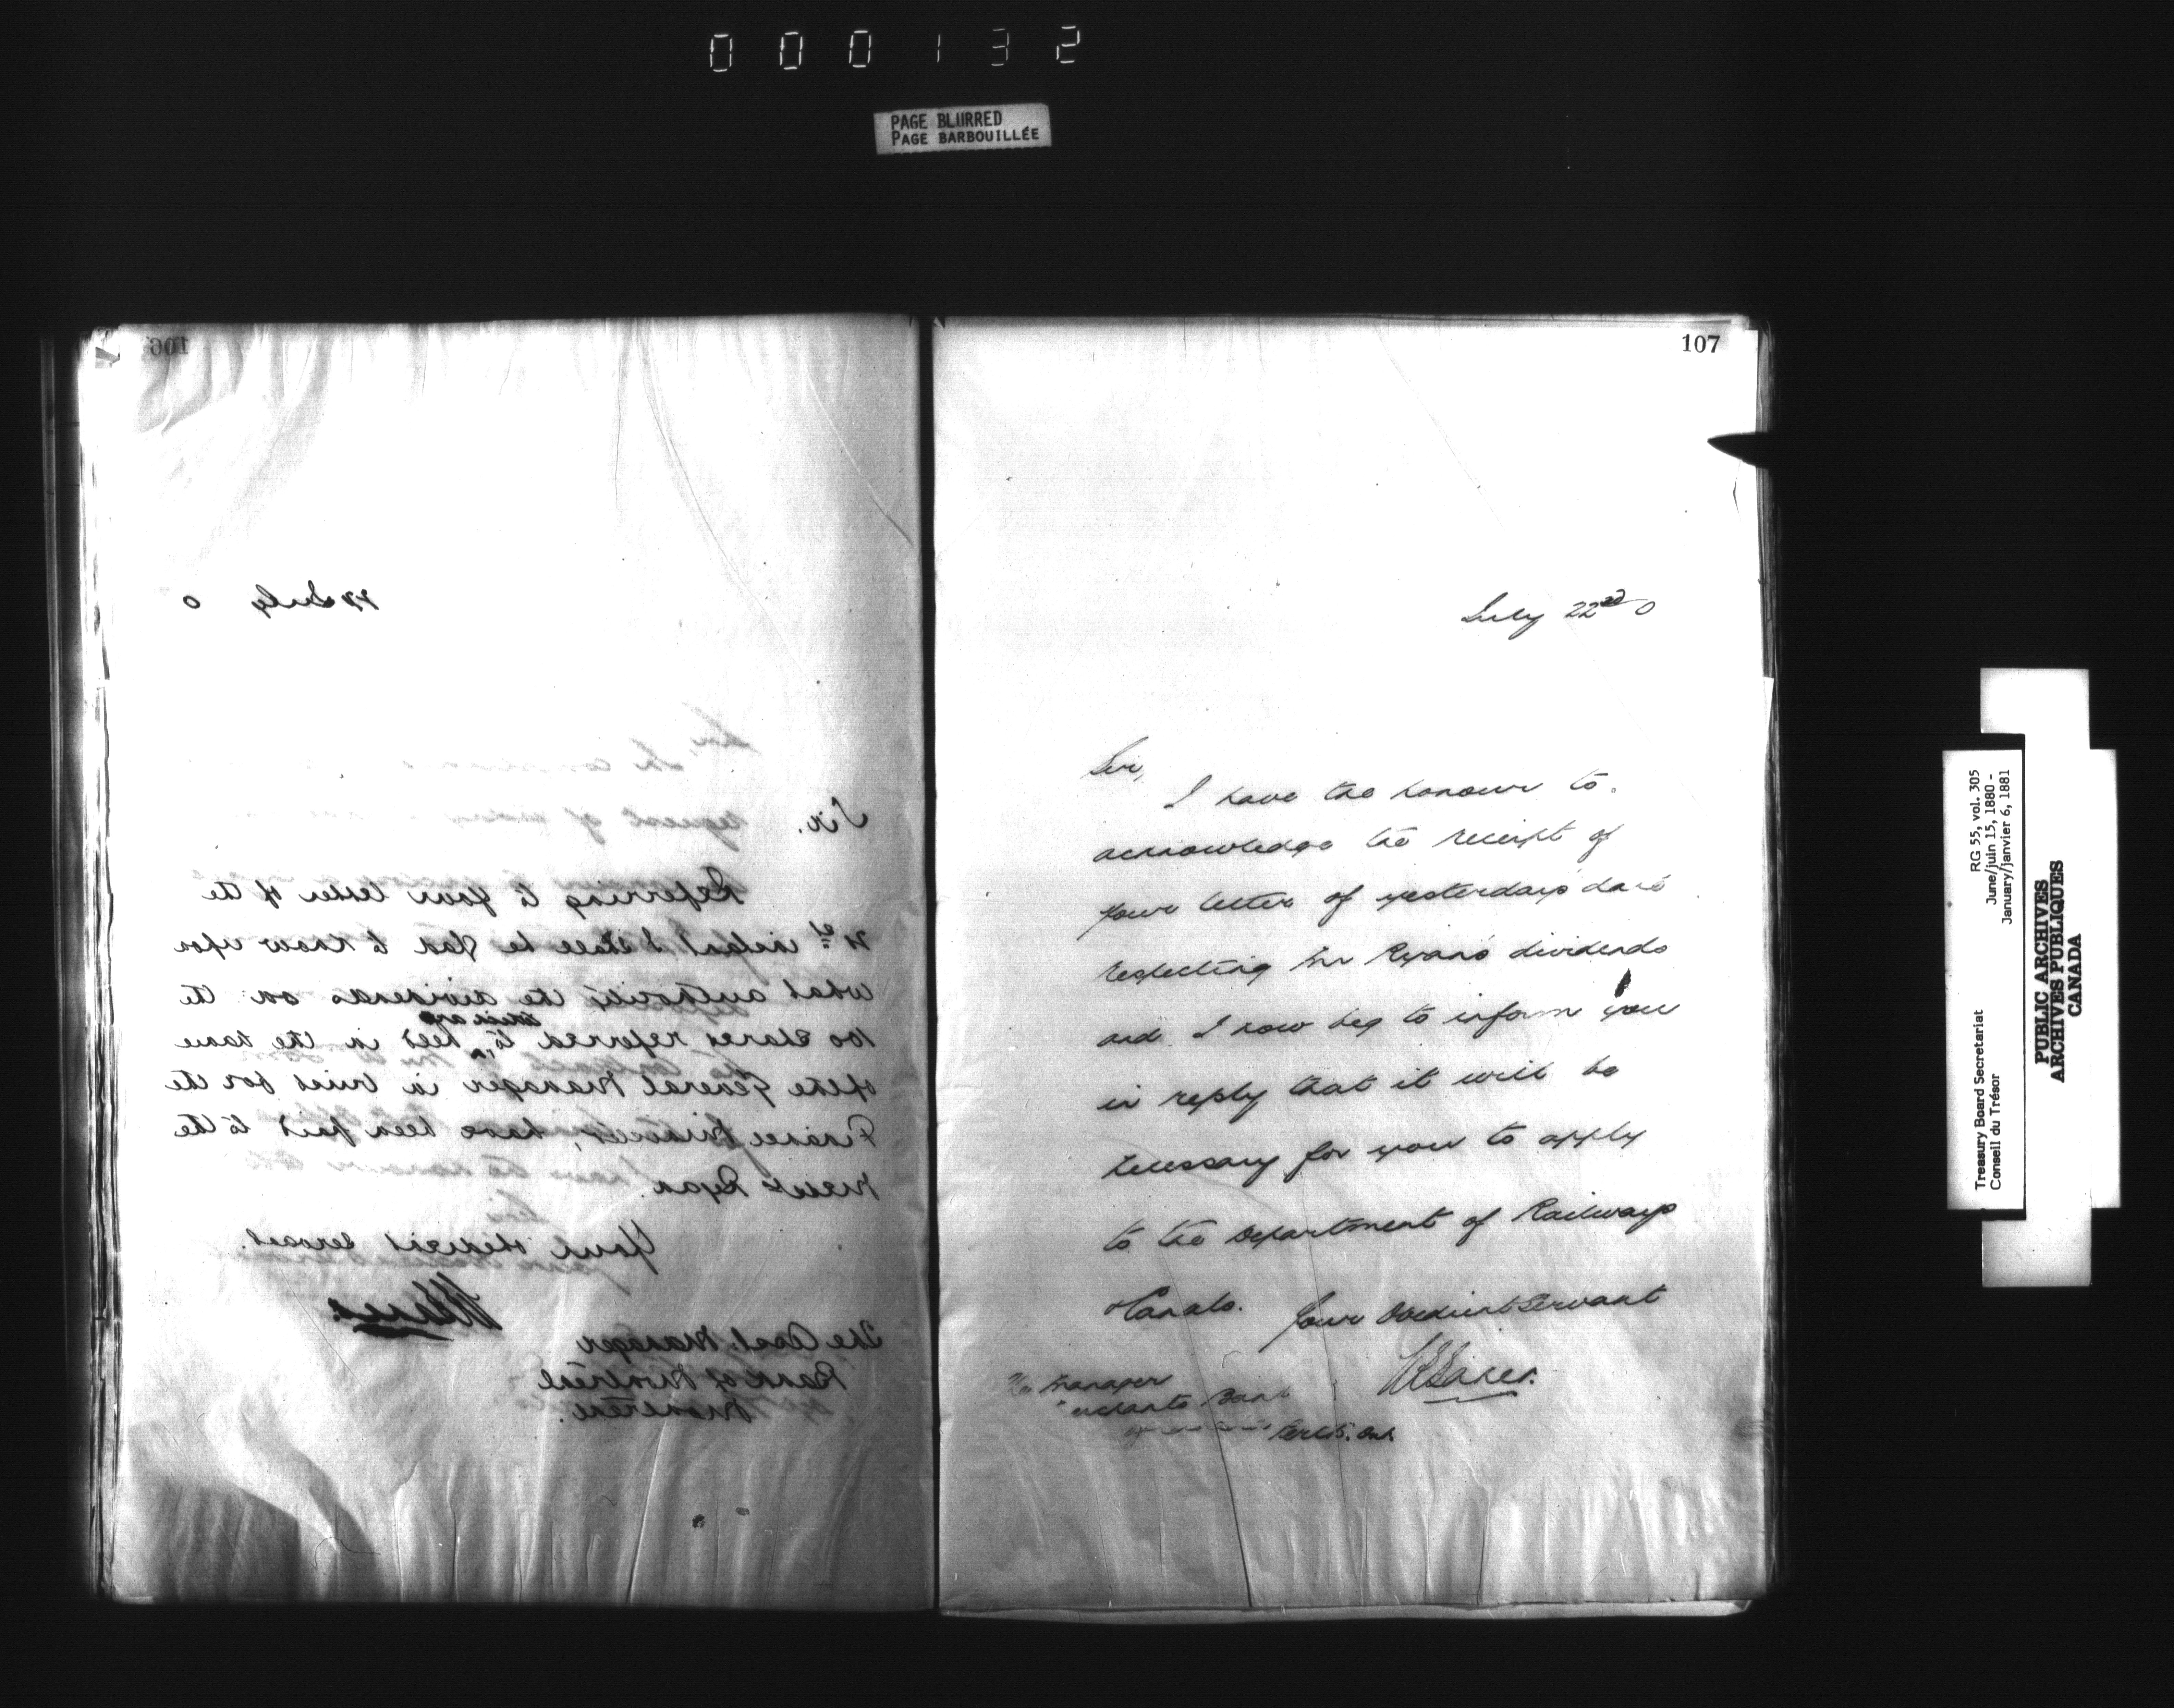 000132
PAGE BLURRED
PAGE BARBOUILLÉE
106
22 July 0
Sir.
Referring to your letter of the
21st instant I shall be glad to know upon
what authority the dividends on the
100 shares referred to, which are held in the name
of the General Manager in trust for the
Finance Minister, have been paid to the
Messrs Ryan.
Your obedient servant.
The Asst. Manager
Bank of Montreal
Montreal.
107
July 22nd 0
Sir,
I have the honour to
acknowledge the receipt of
your letter of yesterday's date
respecting Mr Ryan's dividends
and I now beg to inform you
in reply that it will be
necessary for you to apply
to the Department of Railways
& Canals.
Your Obedient Servant
Manager
Bank
Perth. Ont.
RG 55, vol. 305
June/juin 15, 1880 -
January/janvier 6, 1881
Treasury Board Secretariat
Conseil du Trésor
PUBLIC ARCHIVES
ARCHIVES PUBLIQUES
CANADA